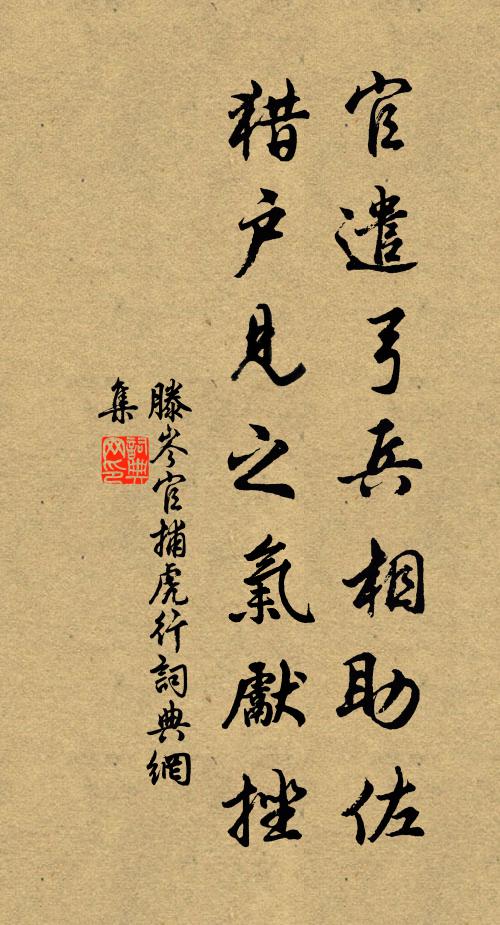 官遣弓兵相助佐
猎户见之氣獻挫
滕岑官捕虎行詞典網
集
詞典网印